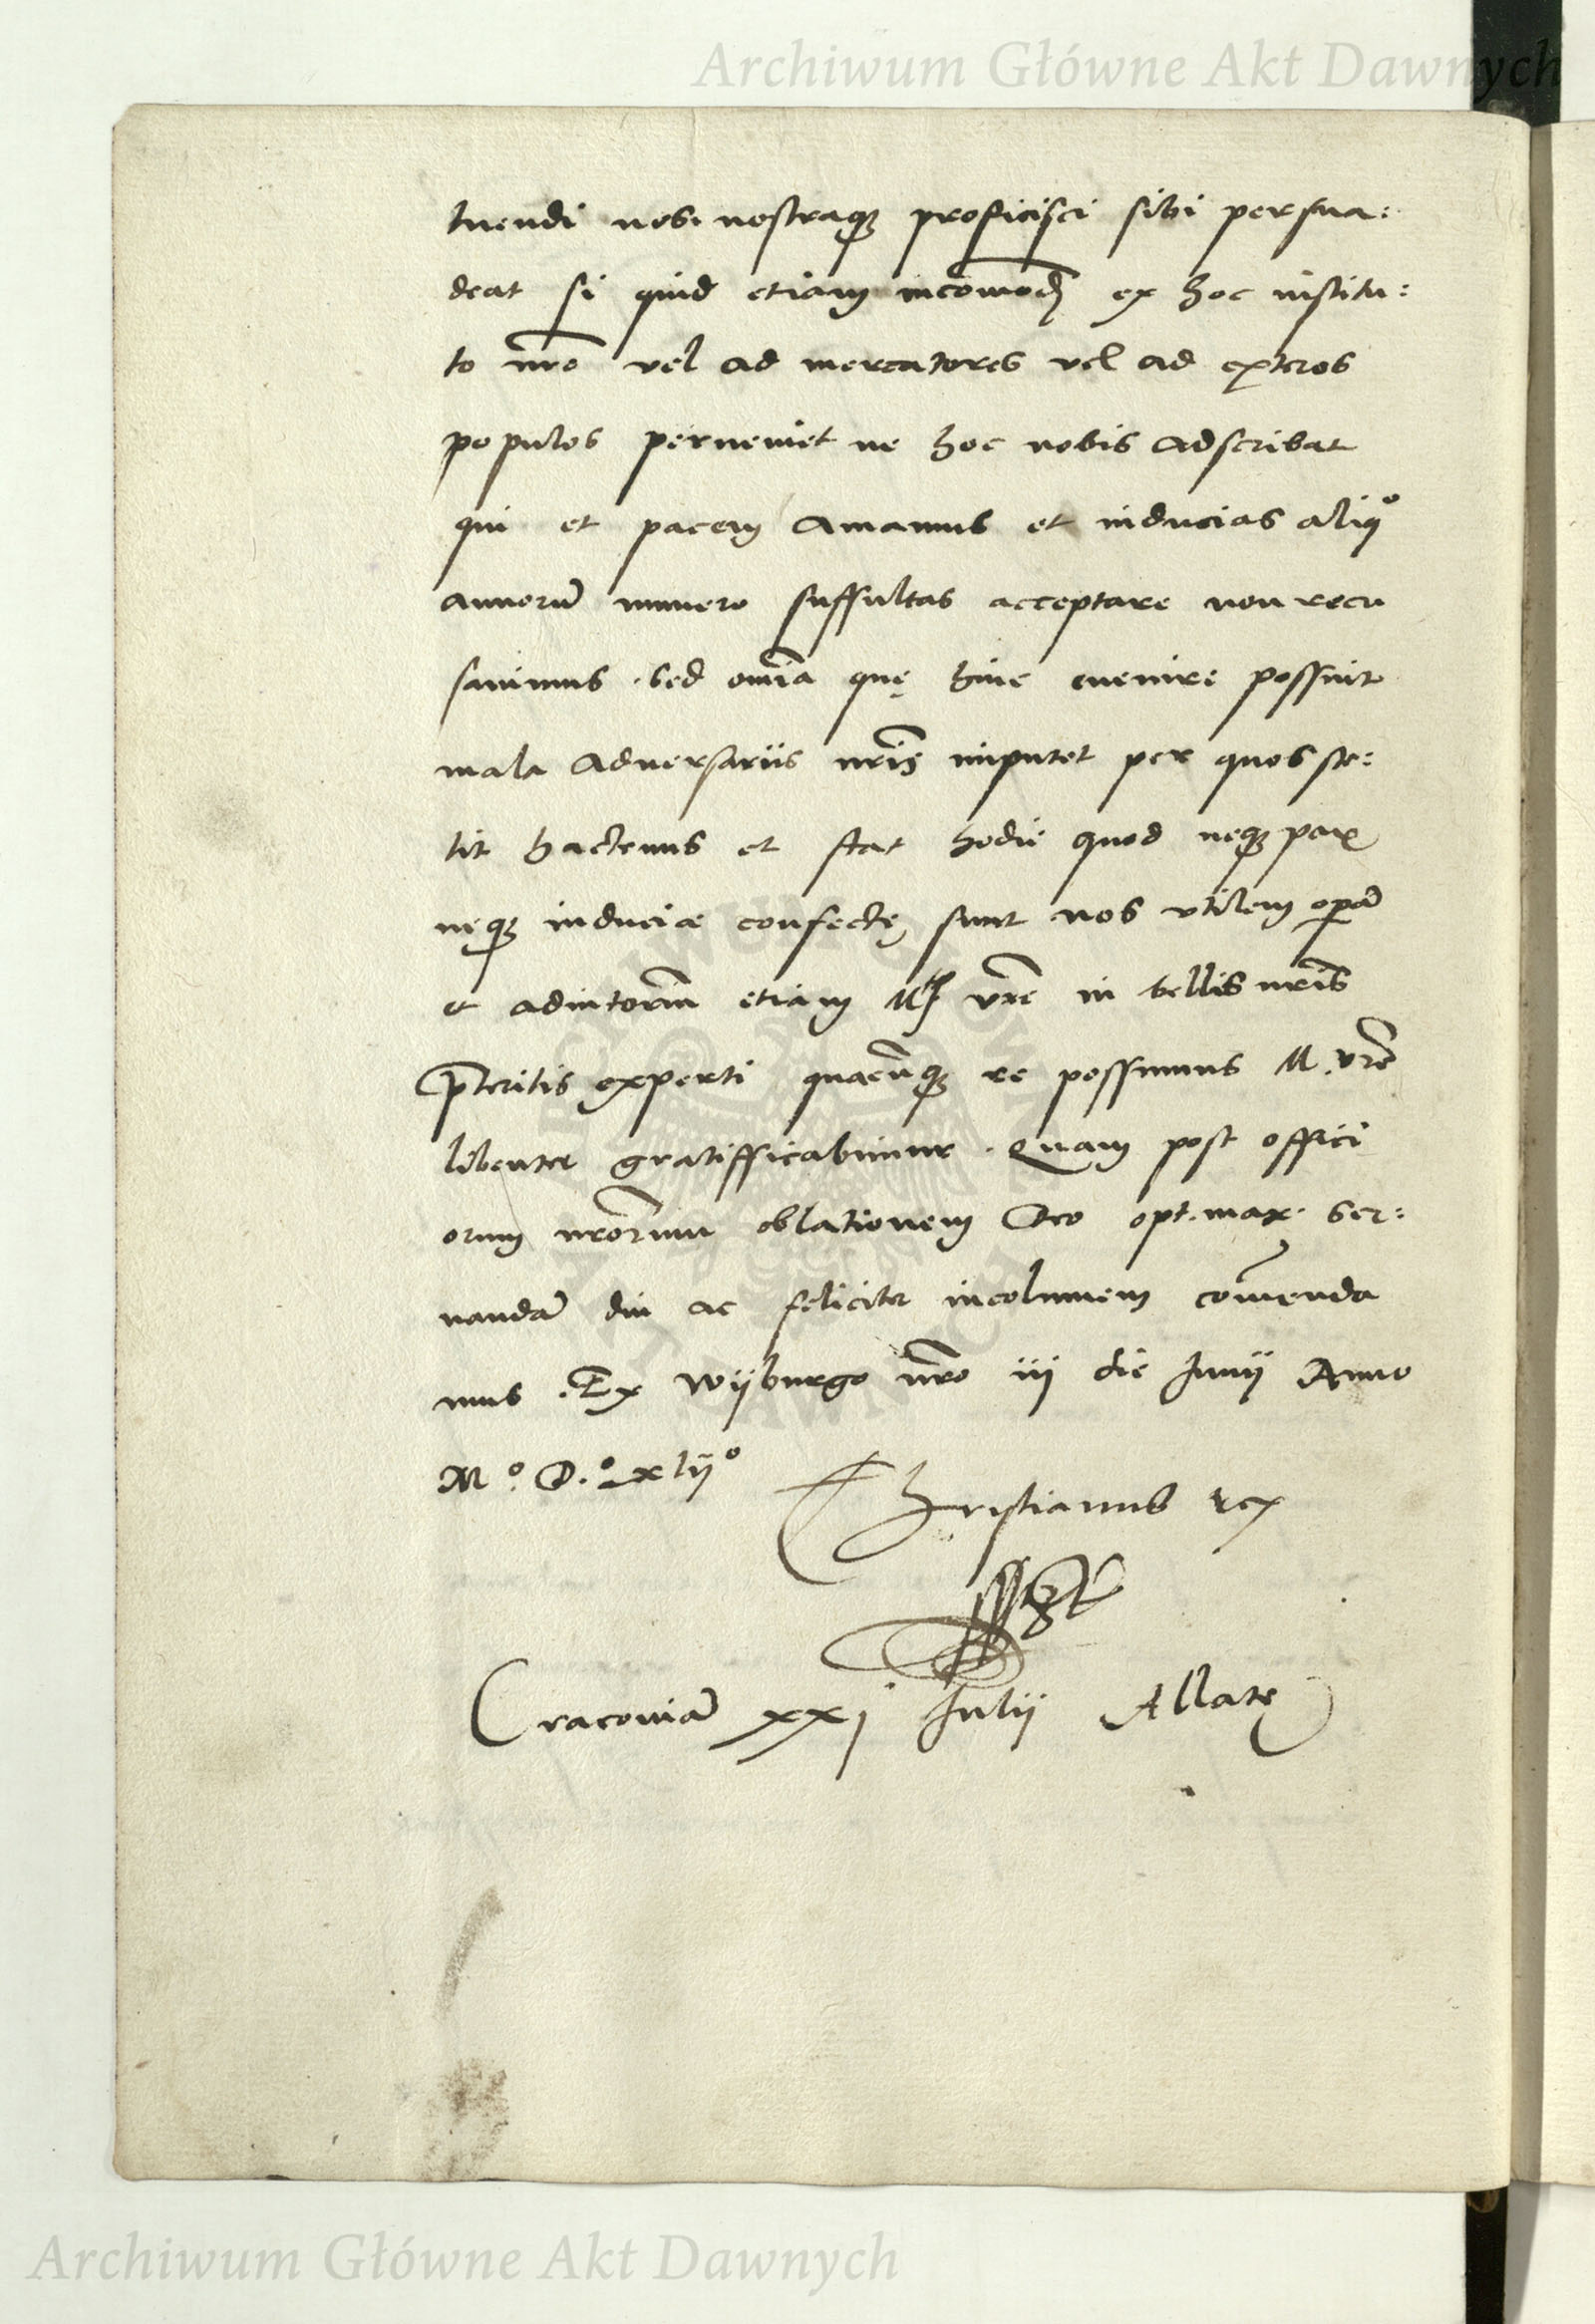 Archiwum Główne Akt Dawnych
tuendi nos nostraq[ue] proficisci sibi persua:
deat si quid etiam incōmodi ex hoc institu:
to nr̄o vel ad mercatores vel ad exteros
populos perueniet ne hoc nobis adscribat
qui et pacem amamus et inducias aliqº
annorū numero suffultas acceptare non recu
sauimus . sed omīa quę hinc euenire possint
mala aduersariis nr̄is imputet per quos ste:
tit hactenus et stat hodie quod neq[ue] pax
neq[ue] induciæ confectę sunt nos vtilem operā
et adiutoriū etiam Mtis vr̄e in bellis nr̄is
p̄teritis experti quacūq[ue] re possumus M. vr̄e
libenter gratifficabimur . Quam post offici
orum nr̄orum oblationem Deo opt. max. ser:
uandā diu ac feliciter incolumem com̄enda
mus . Ex Wijburgo nr̄o iij die Junij Anno
Mº. D.º xlijº
Christianus rex
Cracouiā xxj Julij Allatę
Archiwum Główne Akt Dawnych